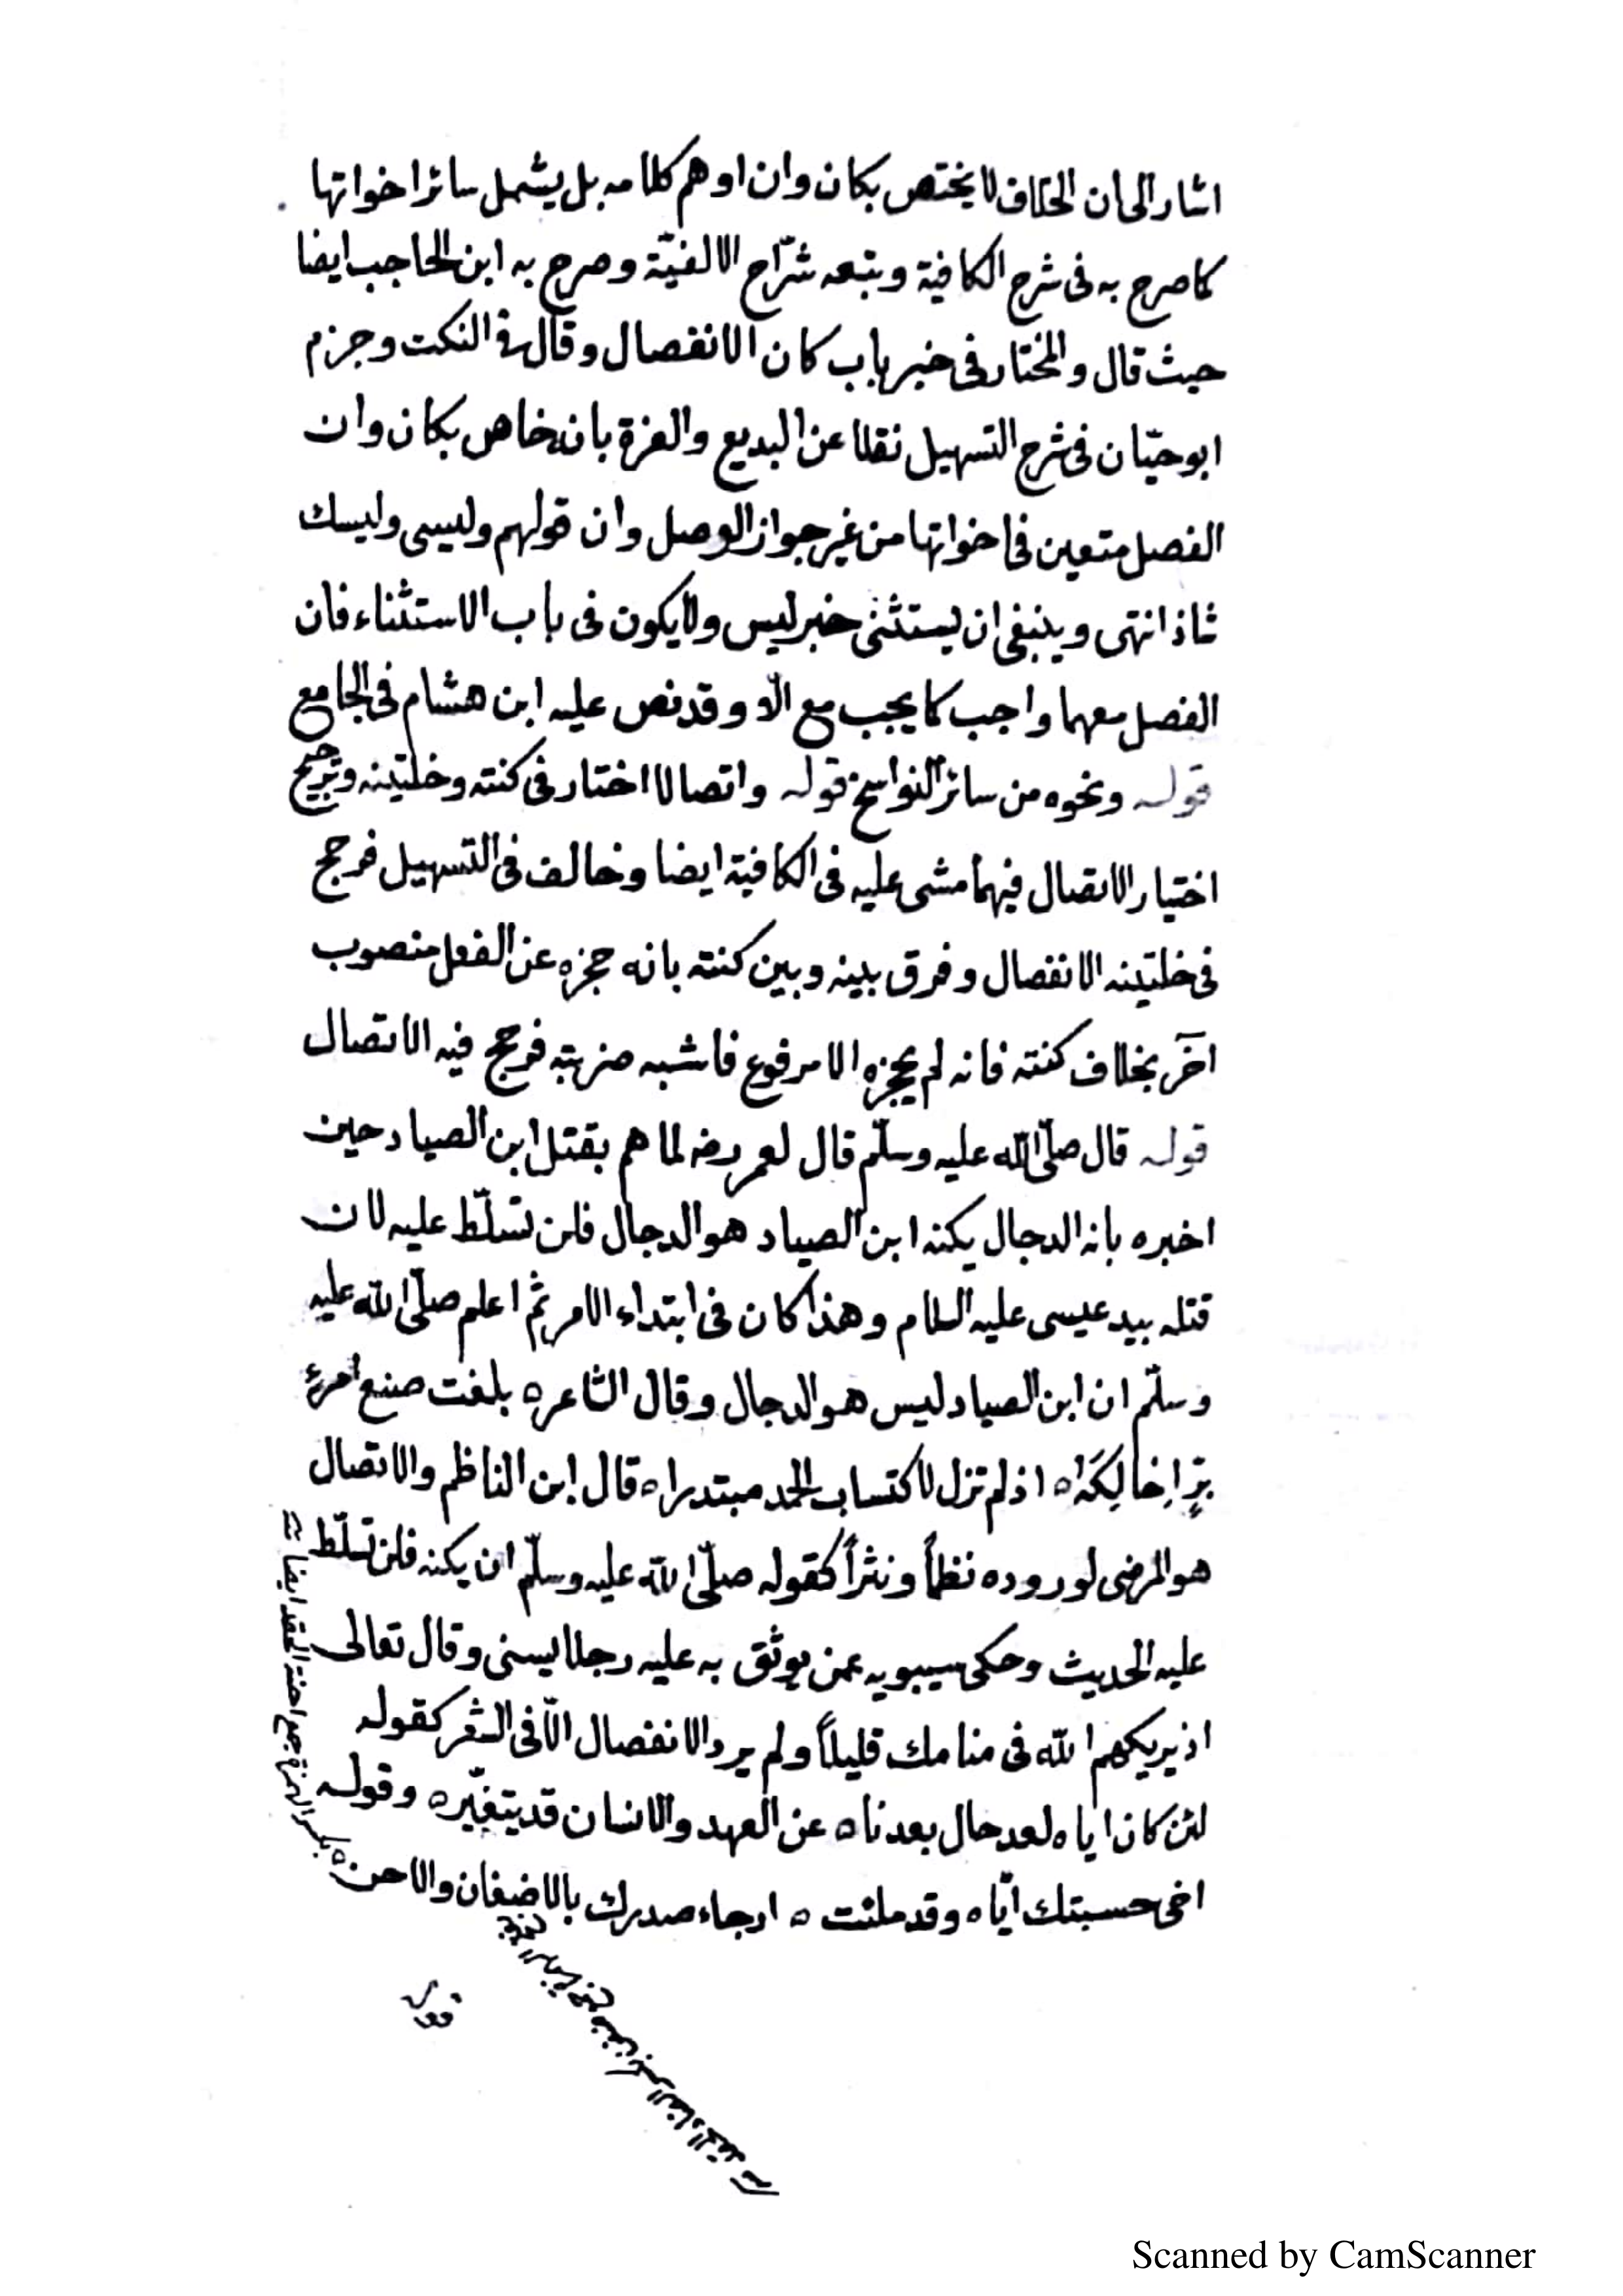 اشار الى ان الخلاف لا يختص بكان وان اوهم كلامه بل يشمل سائر اخواتها
كما صرح به فى شرح الكافية وتبعه شرّاح الالفيّة وصرح به ابن الحاجب ايضا
حيث قال والمختار فى خبر باب كان الانفصال وقال فى النكت وجزم
ابو حيّان فى شرح التسهيل نقلا عن البديع والغرة بانه خاص بكان وان
الفصل متعين فى اخواتها من غير جواز الوصل وان قولهم وليسى وليسك
شاذ انتهى وينبغى ان يستثنى خبر ليس ولا يكون فى باب الاستثناء فان
الفصل معهما واجب كما يجب مع الّا وقد نص عليه ابن هشام فى الجامع
قوله ونحوه من سائر النواسخ قوله واتصالا اختار فى كنته وخلتينه وترجيح
اختيار الاتصال فيهما مشى عليه فى الكافية ايضا وخالف فى التسهيل فرجح
فى خلتينه الانفصال وفرق بينه وبين كنته بانه حجزه عن الفعل منصوب
آخر بخلاف كنته فانه لم يحجزه الا مرفوع فاشبه ضربته فرجح فيه الاتصال
قوله قال صلّى الله عليه وسلّم قال لعمر رضه لما هم بقتل ابن الصياد حين
اخبره بانه الدجال يكنه ابن الصياد هو الدجال فلن تسلّط عليه لان
قتله بيد عيسى عليه السلام وهذا كان فى ابتداء الامر ثم اعلم صلّى الله عليه
وسلّم ان ابن الصياد ليس هو الدجال وقال الشاعر ه بلغت صنع امرئ
برٍّ اِخالِكَهُ ه اذ لم تزل لاكتساب الحمد مبتدرا ه قال ابن الناظم والاتصال
هو المرضى لوروده نظماً ونثراً كقوله صلّى الله عليه وسلّم ان يكنه فلن تسلّط
عليه الحديث وحكى سيبويه عمن يوثق به عليه رجلا ليسنى وقال تعالى
اذ يريكهم الله فى منامك قليلاً ولم يرد الانفصال الّا فى الشعر كقوله
لئن كان اياه لعد حال بعدنا ه عن العهد والانسان قد يتغيّر ه وقوله
اخى حسبتك ايّاه وقد ملئت ه ارجاء صدرك بالاضغان والاحن ه
بكسر الهمزة جمع احنة الحقد ايضا
Scanned by CamScanner